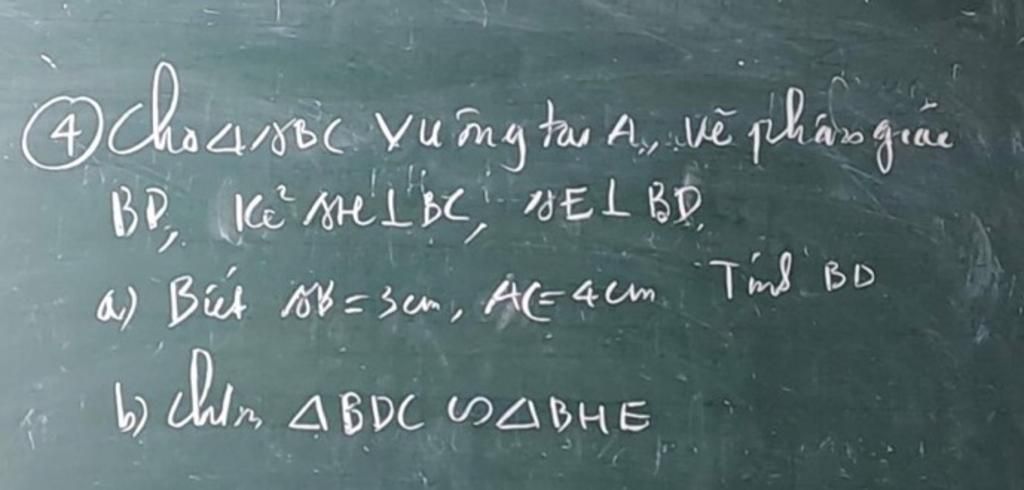 ④ Cho △ABC vuông tại A, vẽ phân giác
BD, Kẻ AH ⊥ BC, AE ⊥ BD.
a) Biết AB = 3cm, AC = 4cm Tính BD
b) Ch/m △BDC ∽ △BHE